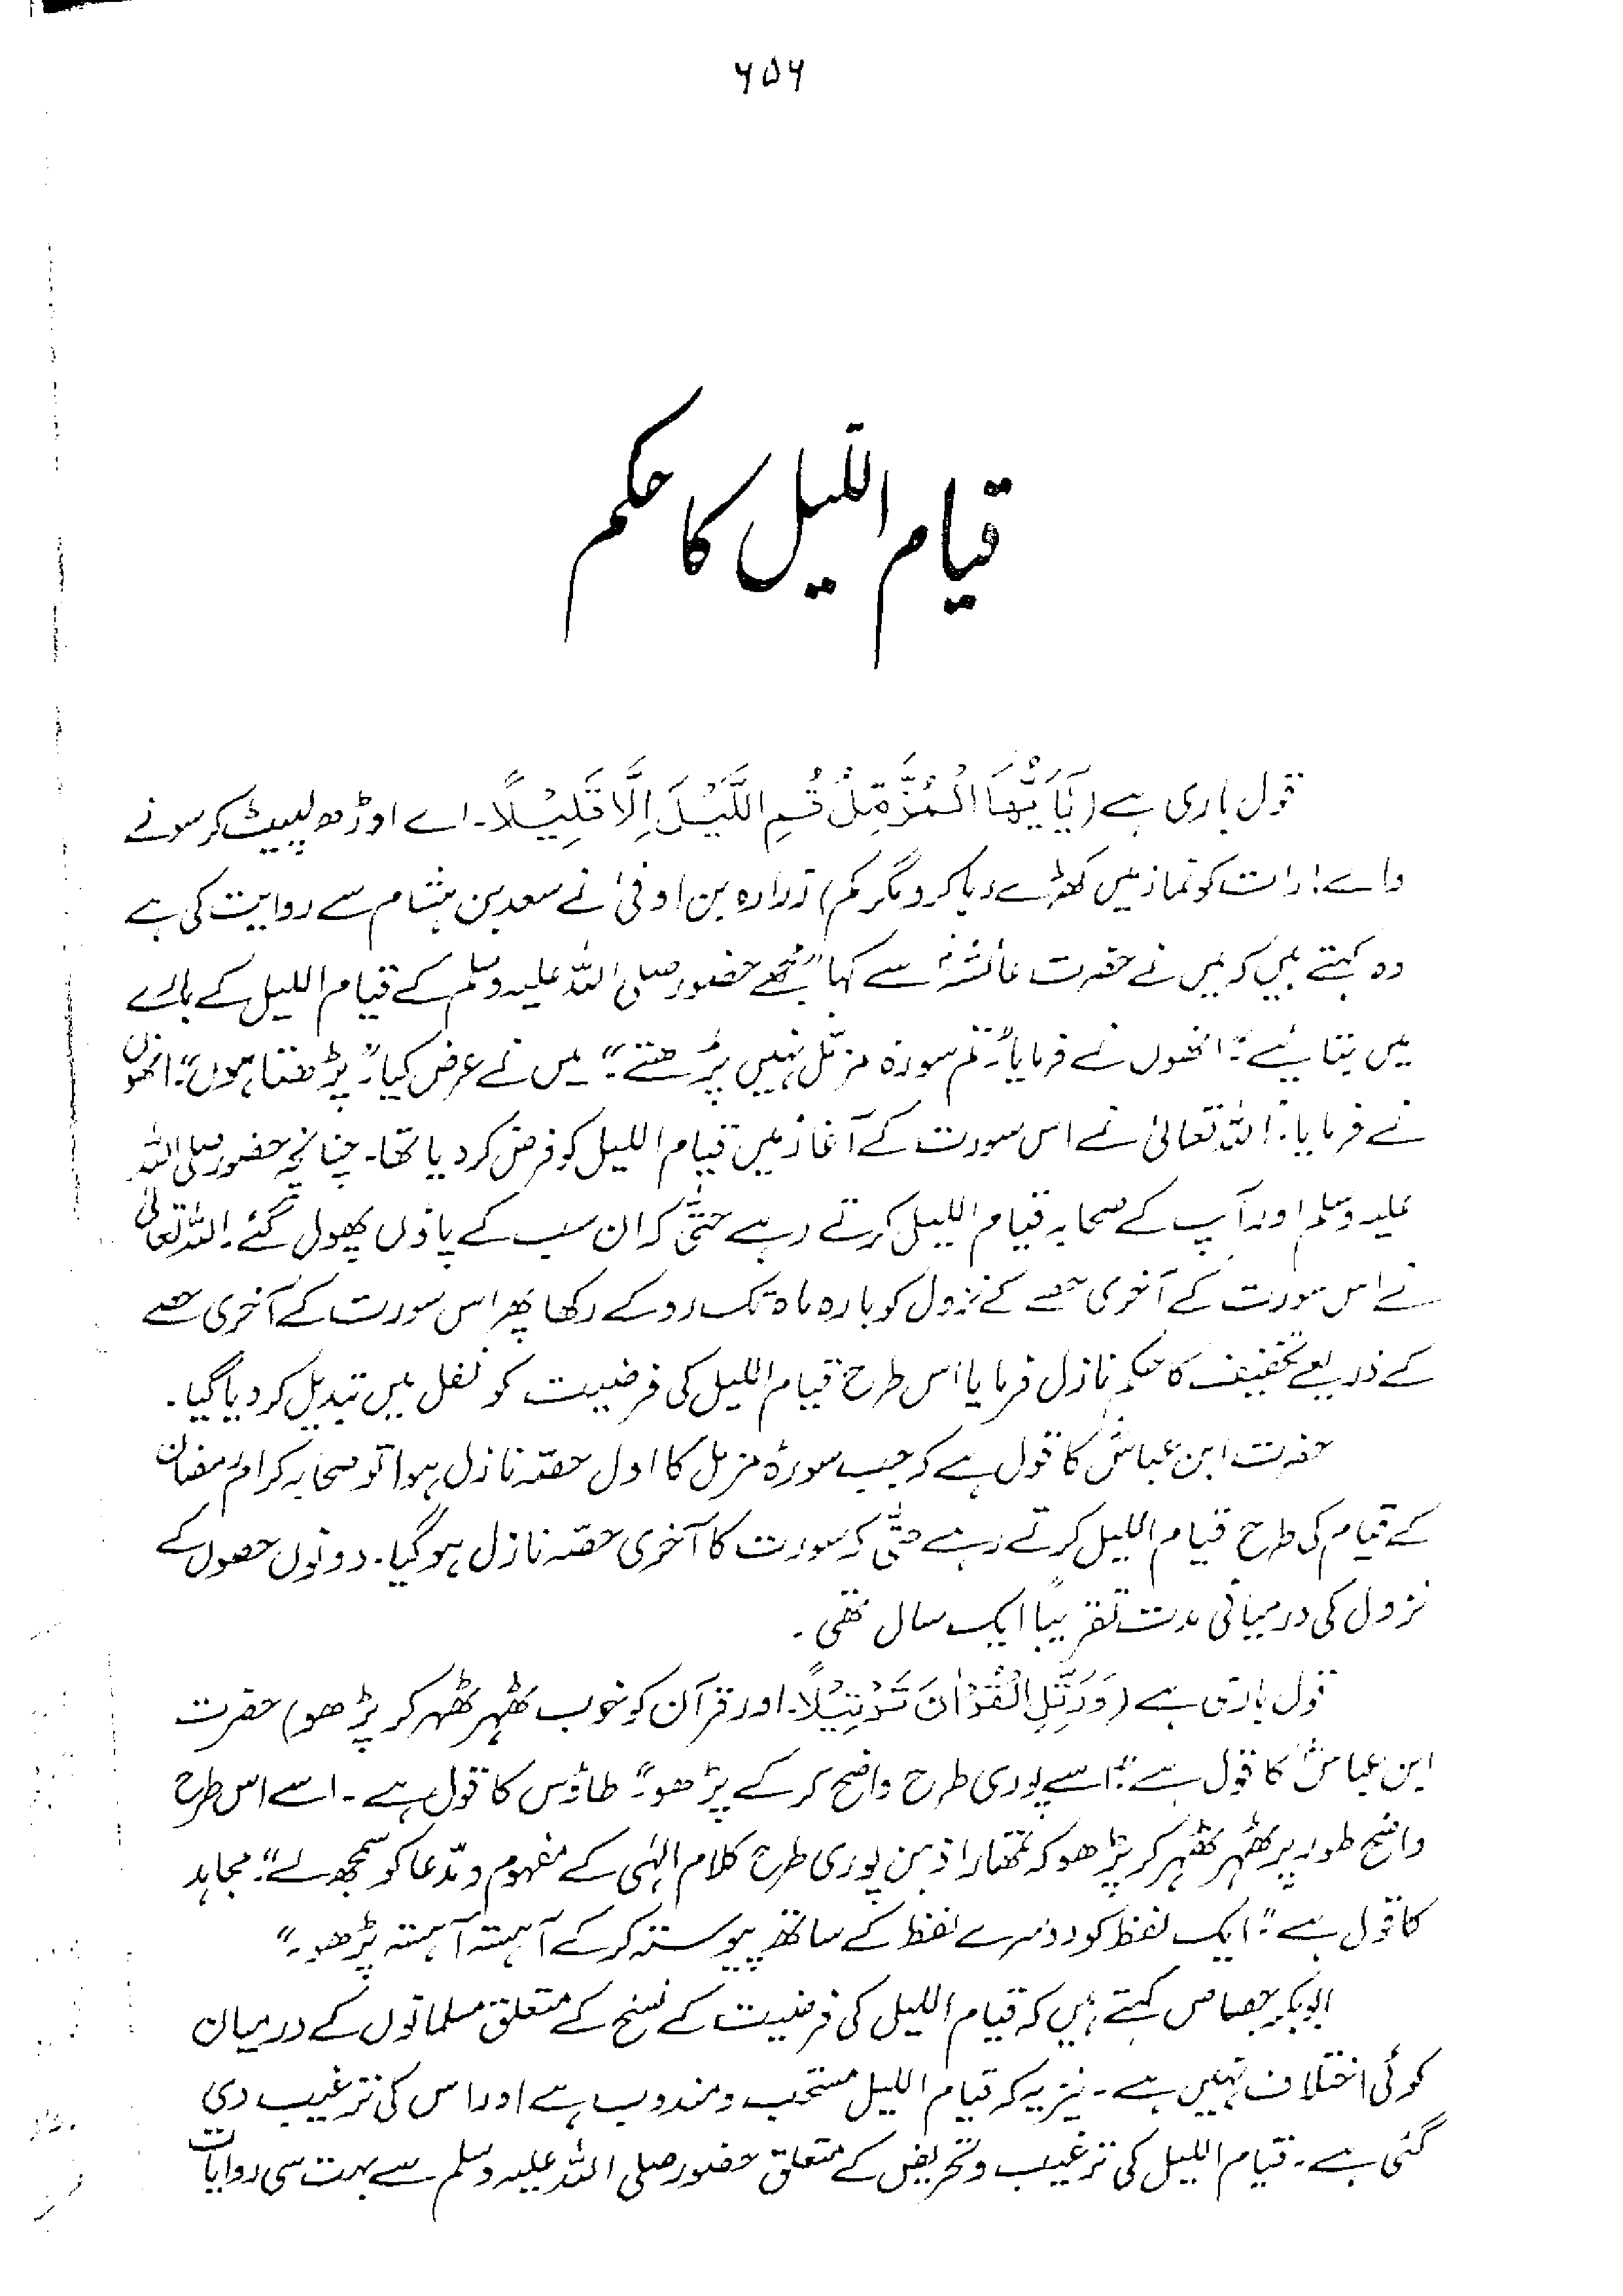 ۶۵۶
قیام اللیل کا حکم
قول باری ہے (یَٰۤاَیُّهَا الْمُزَّمِّلُ قُمِ اللَّیْلَ اِلَّا قَلِیْلًا۔ اے اوڑھ لپیٹ کر سونے
والے! رات کو نماز میں کھڑے رہا کرو مگر کم) زرارہ بن اوفیٰ نے سعد بن ہشام سے روایت کی ہے
وہ کہتے ہیں کہ میں نے حضرت عائشہؓ سے کہا "مجھے حضور صلی اللہ علیہ وسلم کے قیام اللیل کے بارے
میں بتائیے"۔ انھوں نے فرمایا: "تم سورۃ مزمّل نہیں پڑھتے"۔ میں نے عرض کیا "پڑھتا ہوں"۔ انھوں
نے فرمایا۔ "اللہ تعالیٰ نے اس سورت کے آغاز میں قیام اللیل کو فرض کر دیا تھا۔ چنانچہ حضور صلی اللہ
علیہ وسلم اور آپ کے صحابہ قیام اللیل کرتے رہے حتیٰ کہ ان سب کے پاؤں پھول گئے۔ اللہ تعالیٰ
نے اس سورت کے آخری حصے کے نزول کو بارہ ماہ تک روکے رکھا پھر اس سورت کے آخری حصے
کے ذریعے تخفیف کا حکم نازل فرمایا اس طرح قیام اللیل کی فرضیت کو نفل میں تبدیل کر دیا گیا۔
حضرت ابن عباسؓ کا قول ہے کہ جب سورۃ مزمل کا اول حصّہ نازل ہوا تو صحابہ کرام رمضان
کے قیام کی طرح قیام اللیل کرتے رہے حتّٰی کہ سورت کا آخری حصّہ نازل ہو گیا۔ دونوں حصوں کے
نزول کی درمیانی مدت تقریباً ایک سال تھی۔
قول باری ہے (وَرَتِّلِ الْقُرْاٰنَ تَرْتِیْلًا۔ اور قرآن کو خوب ٹھہر ٹھہر کر پڑھو) حضرت
ابن عباسؓ کا قول ہے: "اسے پوری طرح واضح کر کے پڑھو"۔ طاؤس کا قول ہے۔ اسے اس طرح
واضح طور پر ٹھہر ٹھہر کر پڑھو کہ تمھارا ذہن پوری طرح کلام الٰہی کے مفہوم و مدّعا کو سمجھ لے"۔ مجاہد
کا قول ہے: "ایک لفظ کو دوسرے لفظ کے ساتھ پیوستہ کر کے آہستہ آہستہ پڑھو۔"
ابوبکر جصاص کہتے ہیں کہ قیام اللیل کی فرضیت کے نسخ کے متعلق مسلمانوں کے درمیان
کوئی اختلاف نہیں ہے۔ نیز یہ کہ قیام اللیل مستحب و مندوب ہے اور اس کی ترغیب دی
گئی ہے۔ قیام اللیل کی ترغیب و تحریض کے متعلق حضور صلی اللہ علیہ وسلم سے بہت سی روایات